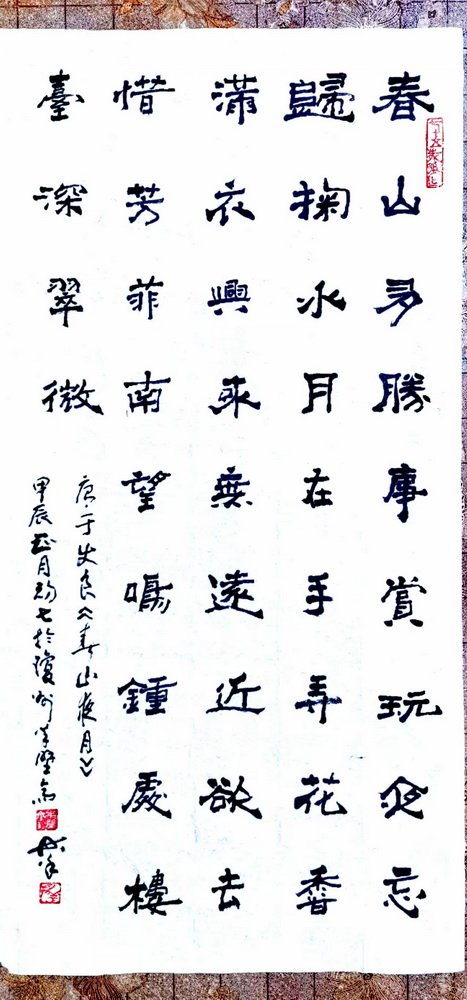 春山多勝事賞玩夜忘
歸掬水月在手弄花香
滿衣興來無遠近欲去
惜芳菲南望鳴鐘處樓
臺深翠微
唐于史良《春山夜月》
甲辰正月初七於瓊州